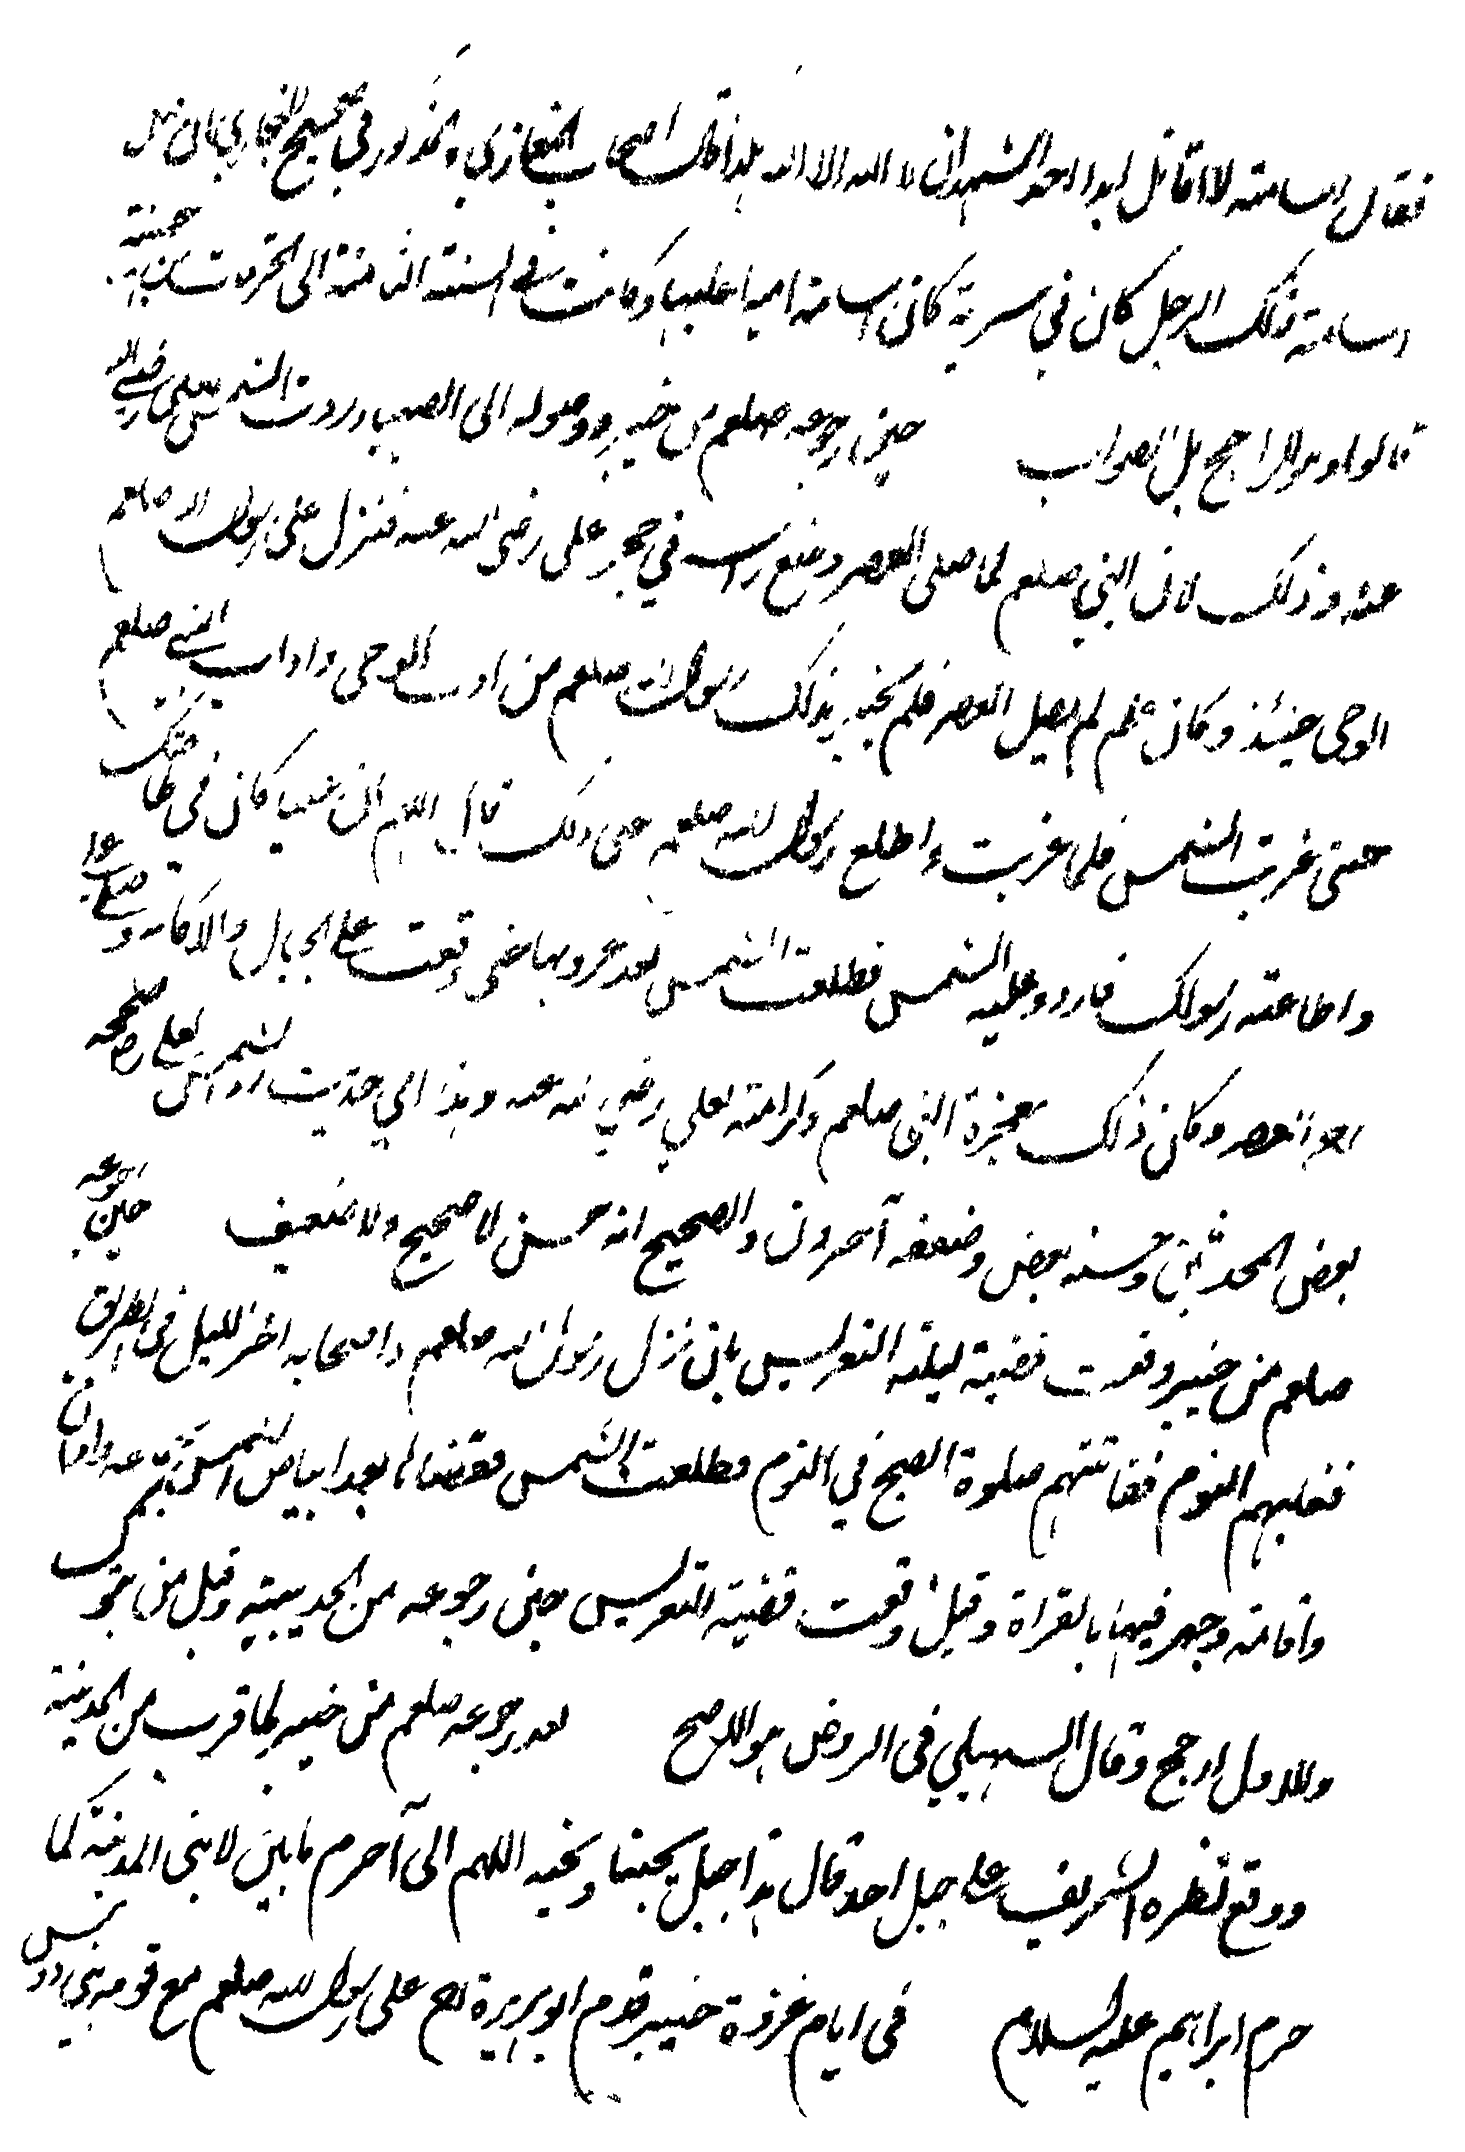 فقال اسامة لا اقاتل ابدا احدا يشهد ان لا اله الا الله هذا قال اصحاب المغازي والمذكور في صحيح البخاري ان قتل
اسامة ذلك الرجل كان في سرية كان اسامة اميرا عليها وكانت في السنة الثامنة الى الحرقات من جهينة
قالوا وهو الراجح بل الصواب حين رجوعه صلعم من خيبر ووصوله الى الصهباء ردت الشمس لعلي رضي الله
عنه وذلك لان النبي صلعم لما صلى العصر وضع راسه في حجر علي رضي الله عنه فنزل على رسول الله صلعم
الوحي حينئذ وكان علي لم يصل العصر فلم يخبر بذلك رسول الله صلعم من ادب الوحي واداب النبي صلعم
حتى غربت الشمس فلما غربت واطلع رسول الله صلعم على ذلك قال اللهم ان عليا كان في طاعتك
واطاعة رسولك فاردد عليه الشمس فطلعت الشمس بعد غروبها حتى وقعت على الجبال والاكام وصلى علي
العصر وكان ذلك معجزة النبي صلعم وكرامة لعلي رضي الله عنه وهذا اي حديث رد الشمس لعلي رض صححه
بعض المحدثين وحسنه بعض وضعفه آخرون والصحيح انه حسن لا صحيح ولا ضعيف حين رجوعه
صلعم من خيبر وقعت قضية ليلة التعريس بان نزل رسول الله صلعم واصحابه اخر الليل في الطريق
فغلبهم النوم ففاتتهم صلوة الصبح في النوم فطلعت الشمس فقضاها بعد ابياض الشمس بجماعة واذان
واقامة وجهر فيها بالقراة وقيل وقعت قضية التعريس حين رجوعه من الحديبية وقيل من تبوك
والاول ارجح وقال السهيلي في الروض هو الاصح بعد رجوعه صلعم من خيبر لما قرب من المدينة
ووقع نظره الشريف على جبل احد قال هذا جبل يحبنا ونحبه اللهم اني احرم ما بين لابتي المدينة كما
حرم ابراهيم عليه السلام في ايام غزوة خيبر قدم ابو هريرة رضـ على رسول الله صلعم مع قومه بني دوس